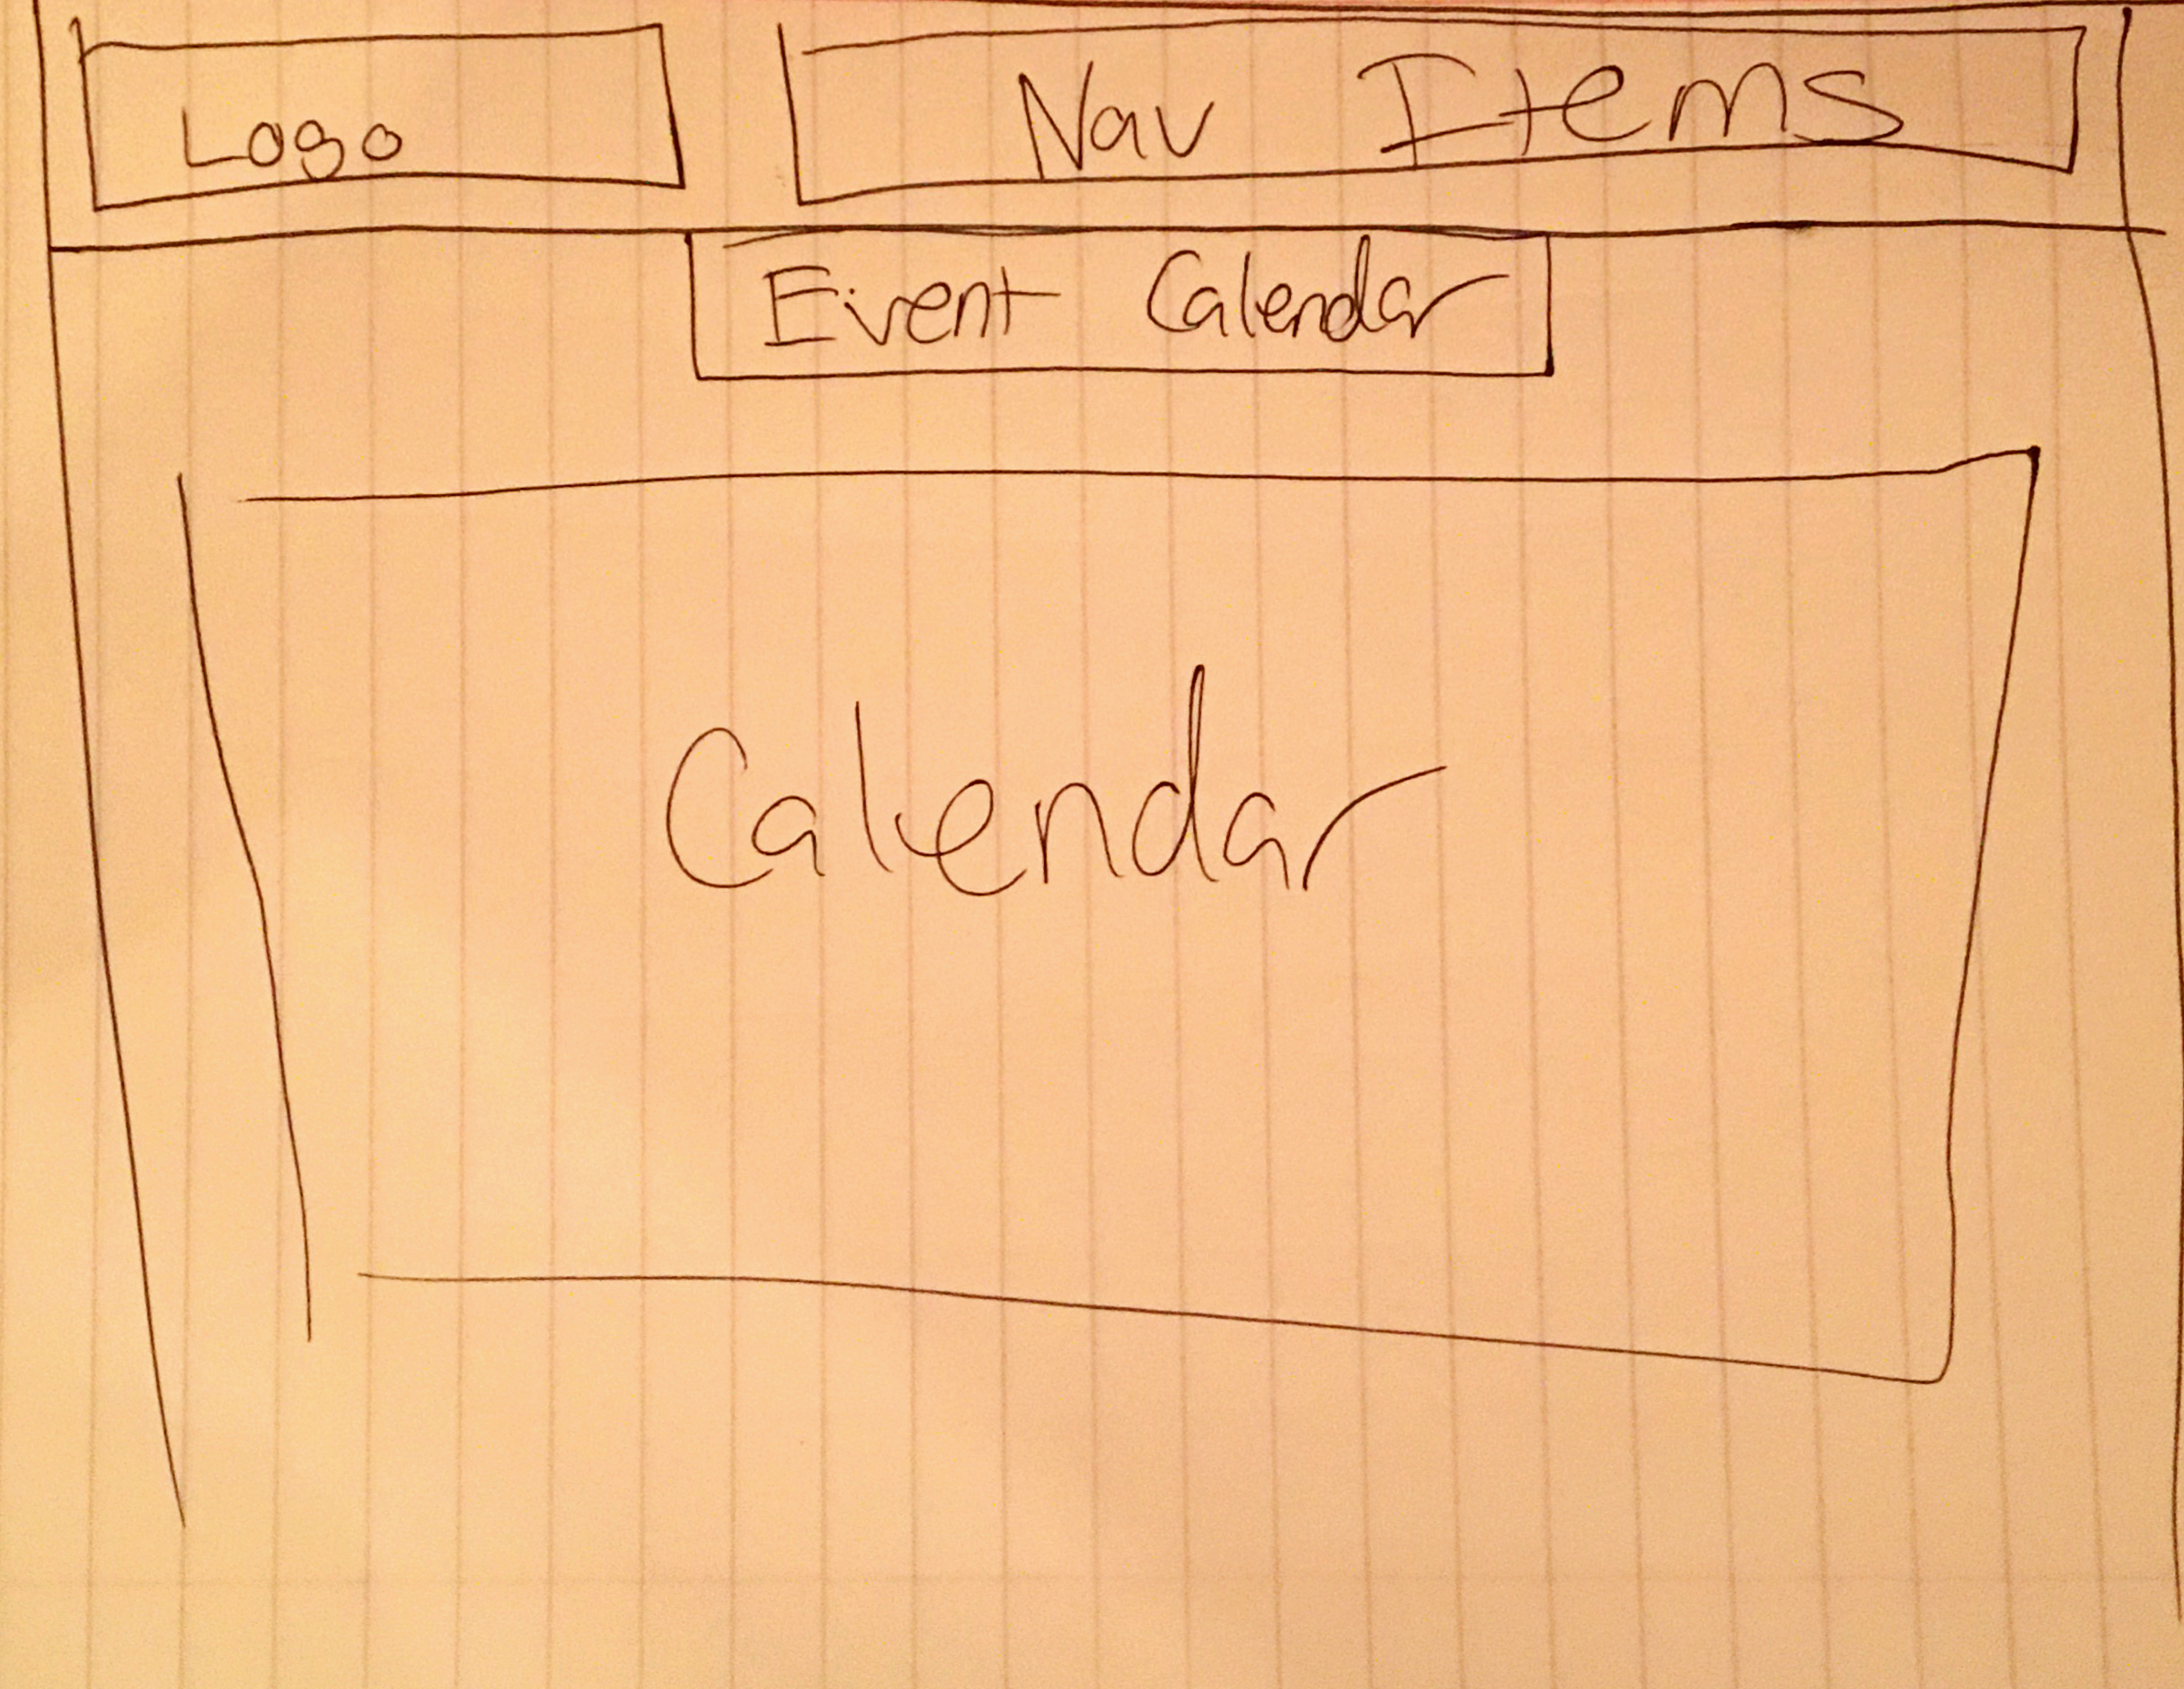 Logo
Nav Items
Event Calendar
Calendar